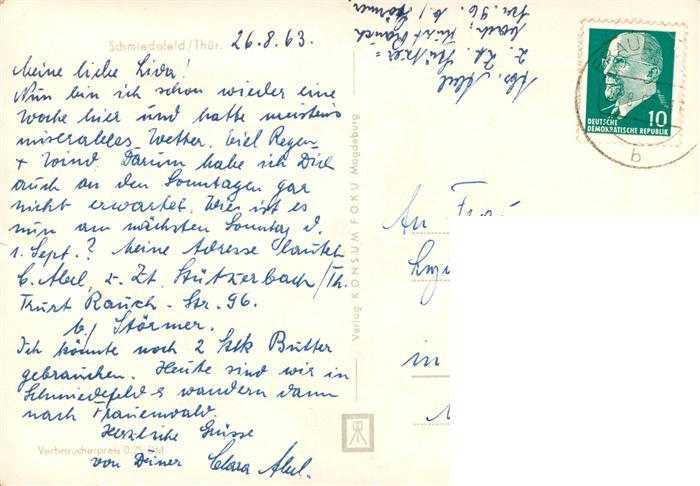 Schmiedefeld/Thür.
26.8.63.
Meine liebe Lida!
Nun bin ich schon wieder eine
Woche hier und hatte meistens
miserables Wetter. Viel Regen
+ Wind. Darum habe ich Dich
auch an den Sonntagen gar
nicht erwartet. Wie ist es
nun am nächsten Sonntag d.
1. Sept.? Meine Adresse lautet
C. Abel, z. Zt. Stützerbach/Th.
Rauch-Str. 96.
b/ Störmer.
Ich könnte noch 2 Stk Butter
gebrauchen. Heute sind wir in
Schmiedefeld & wandern dann
nach Frauenwald.
Herzliche Grüsse
von Deiner Clara Abel.
Verbraucherpreis 0,25 DM
Verlag KONSUM FOKU Magdeburg
Abs. Abel
z. Zt. Stützer=
bach, Rauch
Str. 96 b/ Störmer
DEUTSCHE
DEMOKRATISCHE REPUBLIK
10
b
An Frau
in